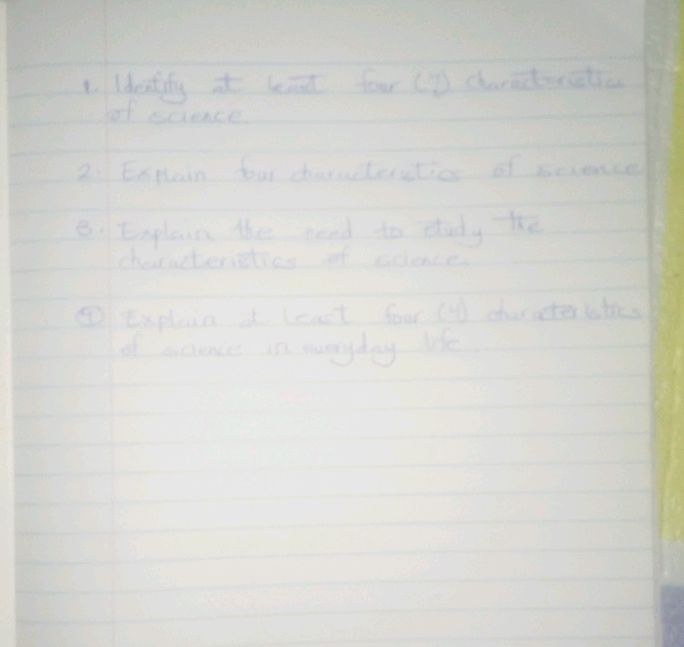 1. Identify at least four (4) characteristics
of science
2. Explain four characteristics of science
3. Explain the need to study the
characteristics of science
4 Explain at least four (4) characteristics
of science in everyday life.